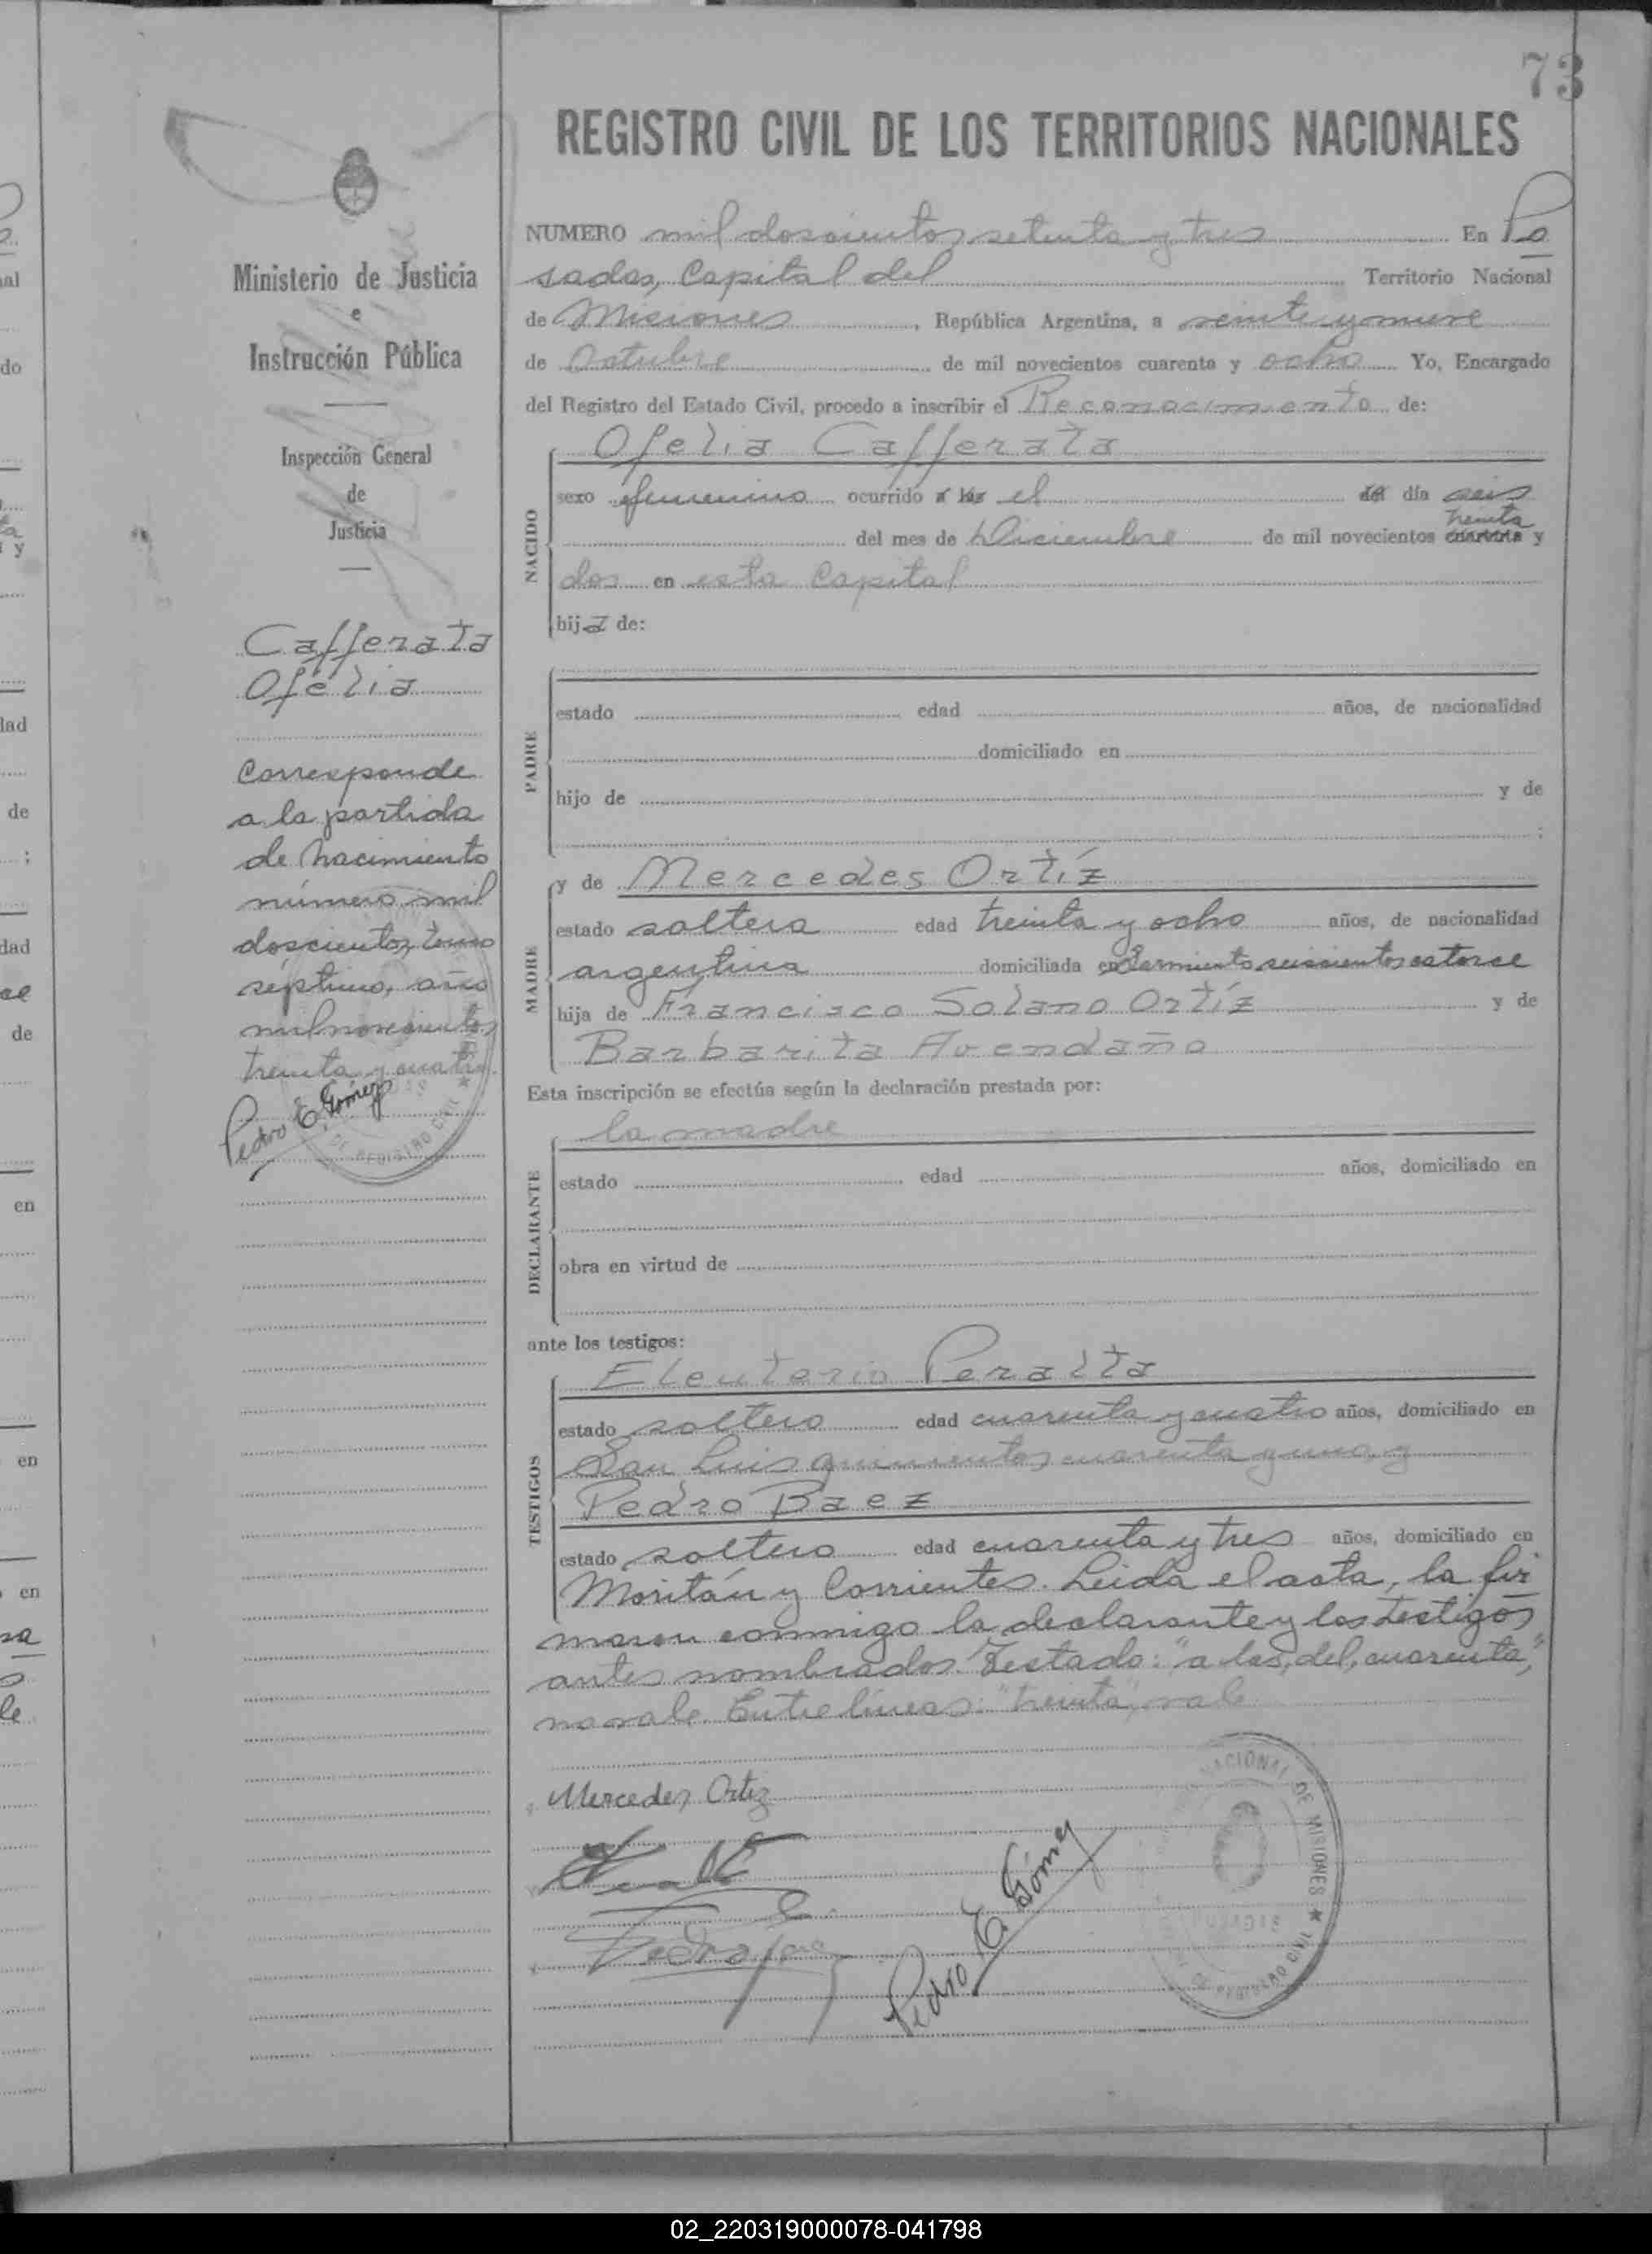 73
REGISTRO CIVIL DE LOS TERRITORIOS NACIONALES
NUMERO mil doscientos setenta y tres En Po
sadas, Capital del Territorio Nacional
de Misiones, República Argentina, a veinte y nueve
de Octubre de mil novecientos cuarenta y ocho Yo, Encargado
del Registro del Estado Civil, procedo a inscribir el Reconocimiento de:
NACIDO
Ofelia Cafferata
sexo femenino ocurrido a las el del día seis
treinta
del mes de Diciembre de mil novecientos cuarenta y
dos en esta Capital
hija de:
PADRE
estado edad años, de nacionalidad
domiciliado en
hijo de y de
;
MADRE
y de Mercedes Ortíz
estado soltera edad treinta y ocho años, de nacionalidad
argentina domiciliada en Sarmiento seiscientos catorce
hija de Francisco Solano Ortíz y de
Barbarita Avendaño
Esta inscripción se efectúa según la declaración prestada por:
DECLARANTE
la madre
estado edad años, domiciliado en
obra en virtud de
ante los testigos:
TESTIGOS
Eleuterio Peralta
estado soltero edad cuarenta y cuatro años, domiciliado en
San Luis quinientos cuarenta y uno, y
Pedro Baez
estado soltero edad cuarenta y tres años, domiciliado en
Moritán y Corrientes. Leida el acta, la fir
maron conmigo la declarante y los testigos
antes nombrados. Testado: "a las, del, cuarenta,"
no vale. Entre líneas: "treinta", vale
Mercedes Ortiz
Pedro E. Gómez
NACIONAL DE MISIONES ★
REGISTRO CIVIL
Ministerio de Justicia
e
Instrucción Pública
Inspección General
de
Justicia
Cafferata
Ofelia
Corresponde
a la partida
de nacimiento
número mil
doscientos, tomo
séptimo, año
mil novecientos
treinta y cuatro.
Pedro E. Gómez
DE REGISTRO CIVIL ★
02_220319000078-041798